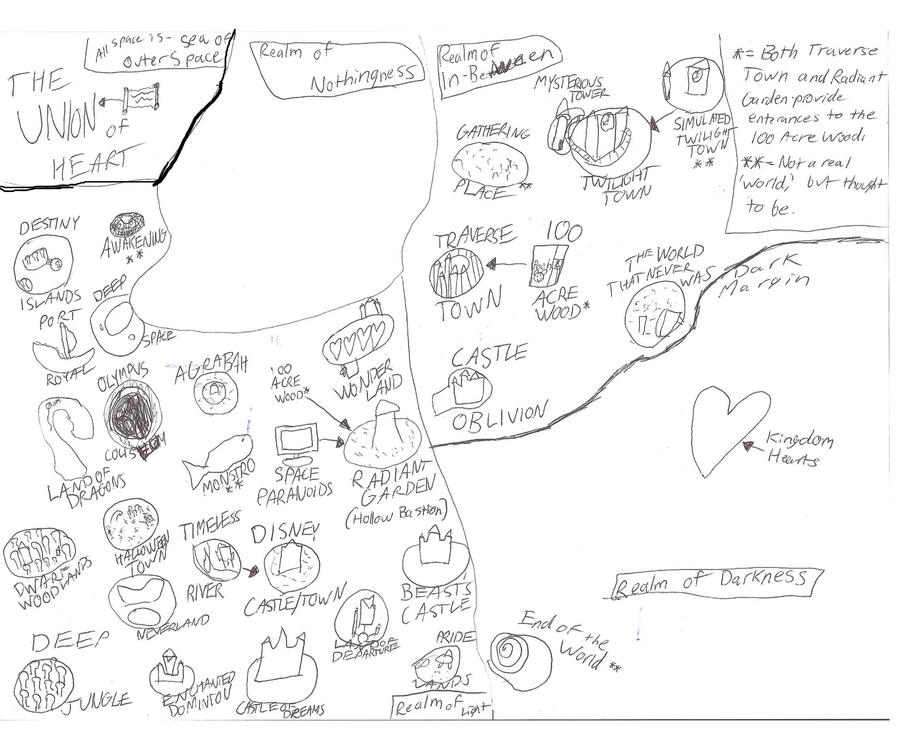 All space is - sea of
outer space
THE
UNION
of
HEART
Realm of
Nothingness
Realm of
In-Between
MYSTERIOUS
TOWER
SIMULATED
TWILIGHT
TOWN
**
GATHERING
PLACE **
TWILIGHT
TOWN
*= Both Traverse
Town and Radiant
Garden provide
entrances to the
100 Acre Wood.
**= Not a real
'world,' but thought
to be.
DESTINY
ISLANDS
AWAKENING
**
TRAVERSE
TOWN
100
Pooh
ACRE
WOOD*
THE WORLD
THAT NEVER
WAS
Dark
Margin
PORT
ROYAL
DEEP
SPACE
OLYMPUS
COLISEUM
AGRABAH
100
ACRE
WOOD*
WONDER
LAND
CASTLE
OBLIVION
Kingdom
Hearts
LAND OF
DRAGONS
MONSTRO
**
SPACE
PARANOIDS
RADIANT
GARDEN
(Hollow Bastion)
DWARF
WOODLANDS
HALLOWEEN
TOWN
TIMELESS
RIVER
DISNEY
CASTLE/TOWN
BEAST'S
CASTLE
Realm of Darkness
NEVERLAND
LAND OF
DEPARTURE
DEEP
JUNGLE
ENCHANTED
DOMINION
CASTLE OF DREAMS
PRIDE
LANDS
End of the
World **
Realm of Light